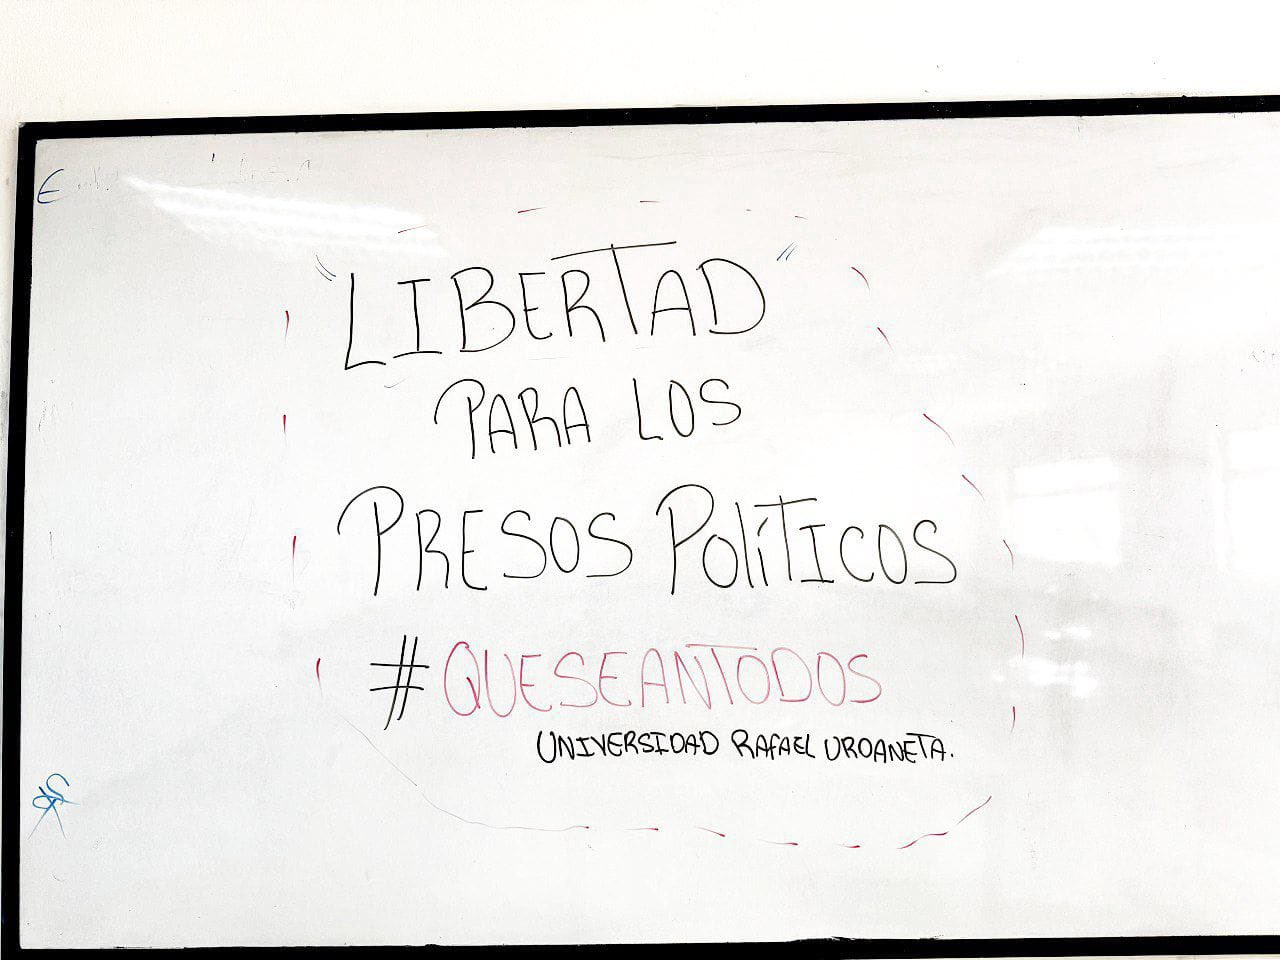 "LIBERTAD"
PARA LOS
PRESOS POLÍTICOS
#QUESEANTODOS
UNIVERSIDAD RAFAEL URDANETA.